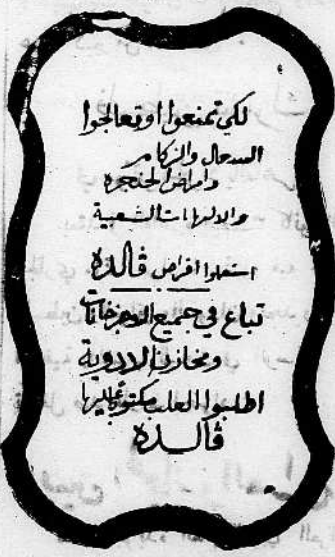 لكي تمنعوا او تعالجوا
السعال والزكام
وامراض الحنجرة
والالتهابات الشعبية
استعملوا اقراص ڤالده
تباع في جميع الاجزخانات
ومخازن الادوية
اطلبوا العلب مكتوب عليها
ڤالده